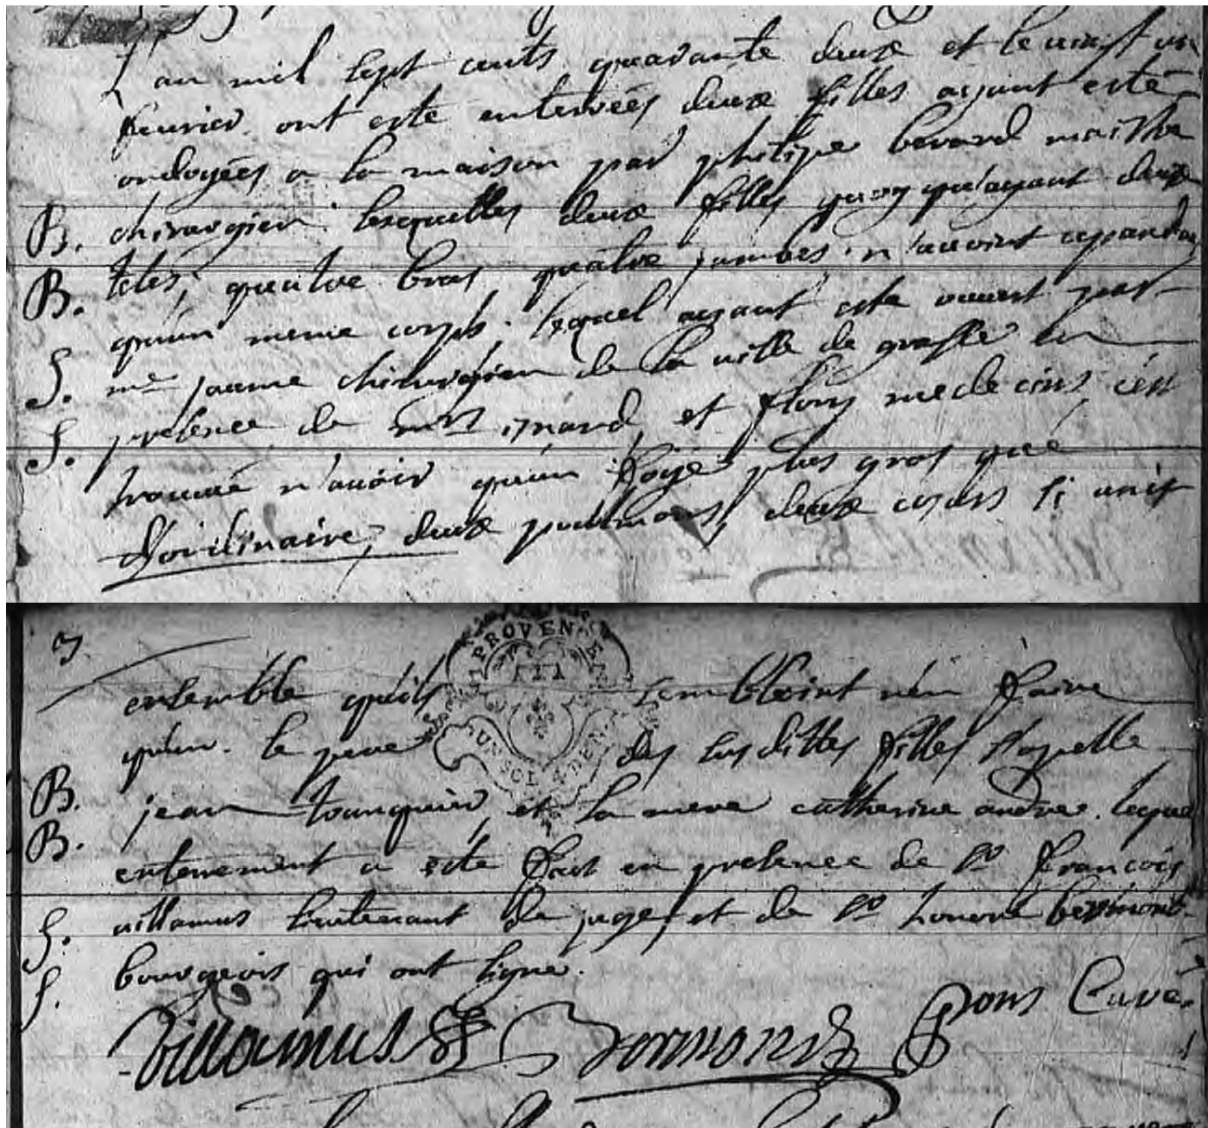 L'an mil sept cents quarante deux et le vingt un
fevrier ont esté enterrées deux filles ayant esté
ondoyées a la maison par philipe berard maistre
B. chirurgien lesquelles deux filles quoy qu'ayant deux
B. tetes, quatre bras, quatre jambes n'avoint cependant
qu'un meme corps. lequel ayant esté ouvert par
S. me jaume chirurgien de la ville de grasse en
S. presence de mrs isnard et flory medecins, s'est
trouvé n'avoir qu'un foye plus gros que
d'ordinaire, deux poulmons, deux coeurs si unit
3
ensemble qu'ils sembloint n'en faire
qu'un. le pere des susdittes filles s'apelle
B. jean touquier, et la mere catherine andre. lequel
B. enterrement a esté fait en presence de sr francois
S. villamus lieutenant de juge, et de sr honoré bermond
S. bourgeois qui ont signé.
Villamus Bermond pons Curé
PROVEN
UN SOL 4 DEN